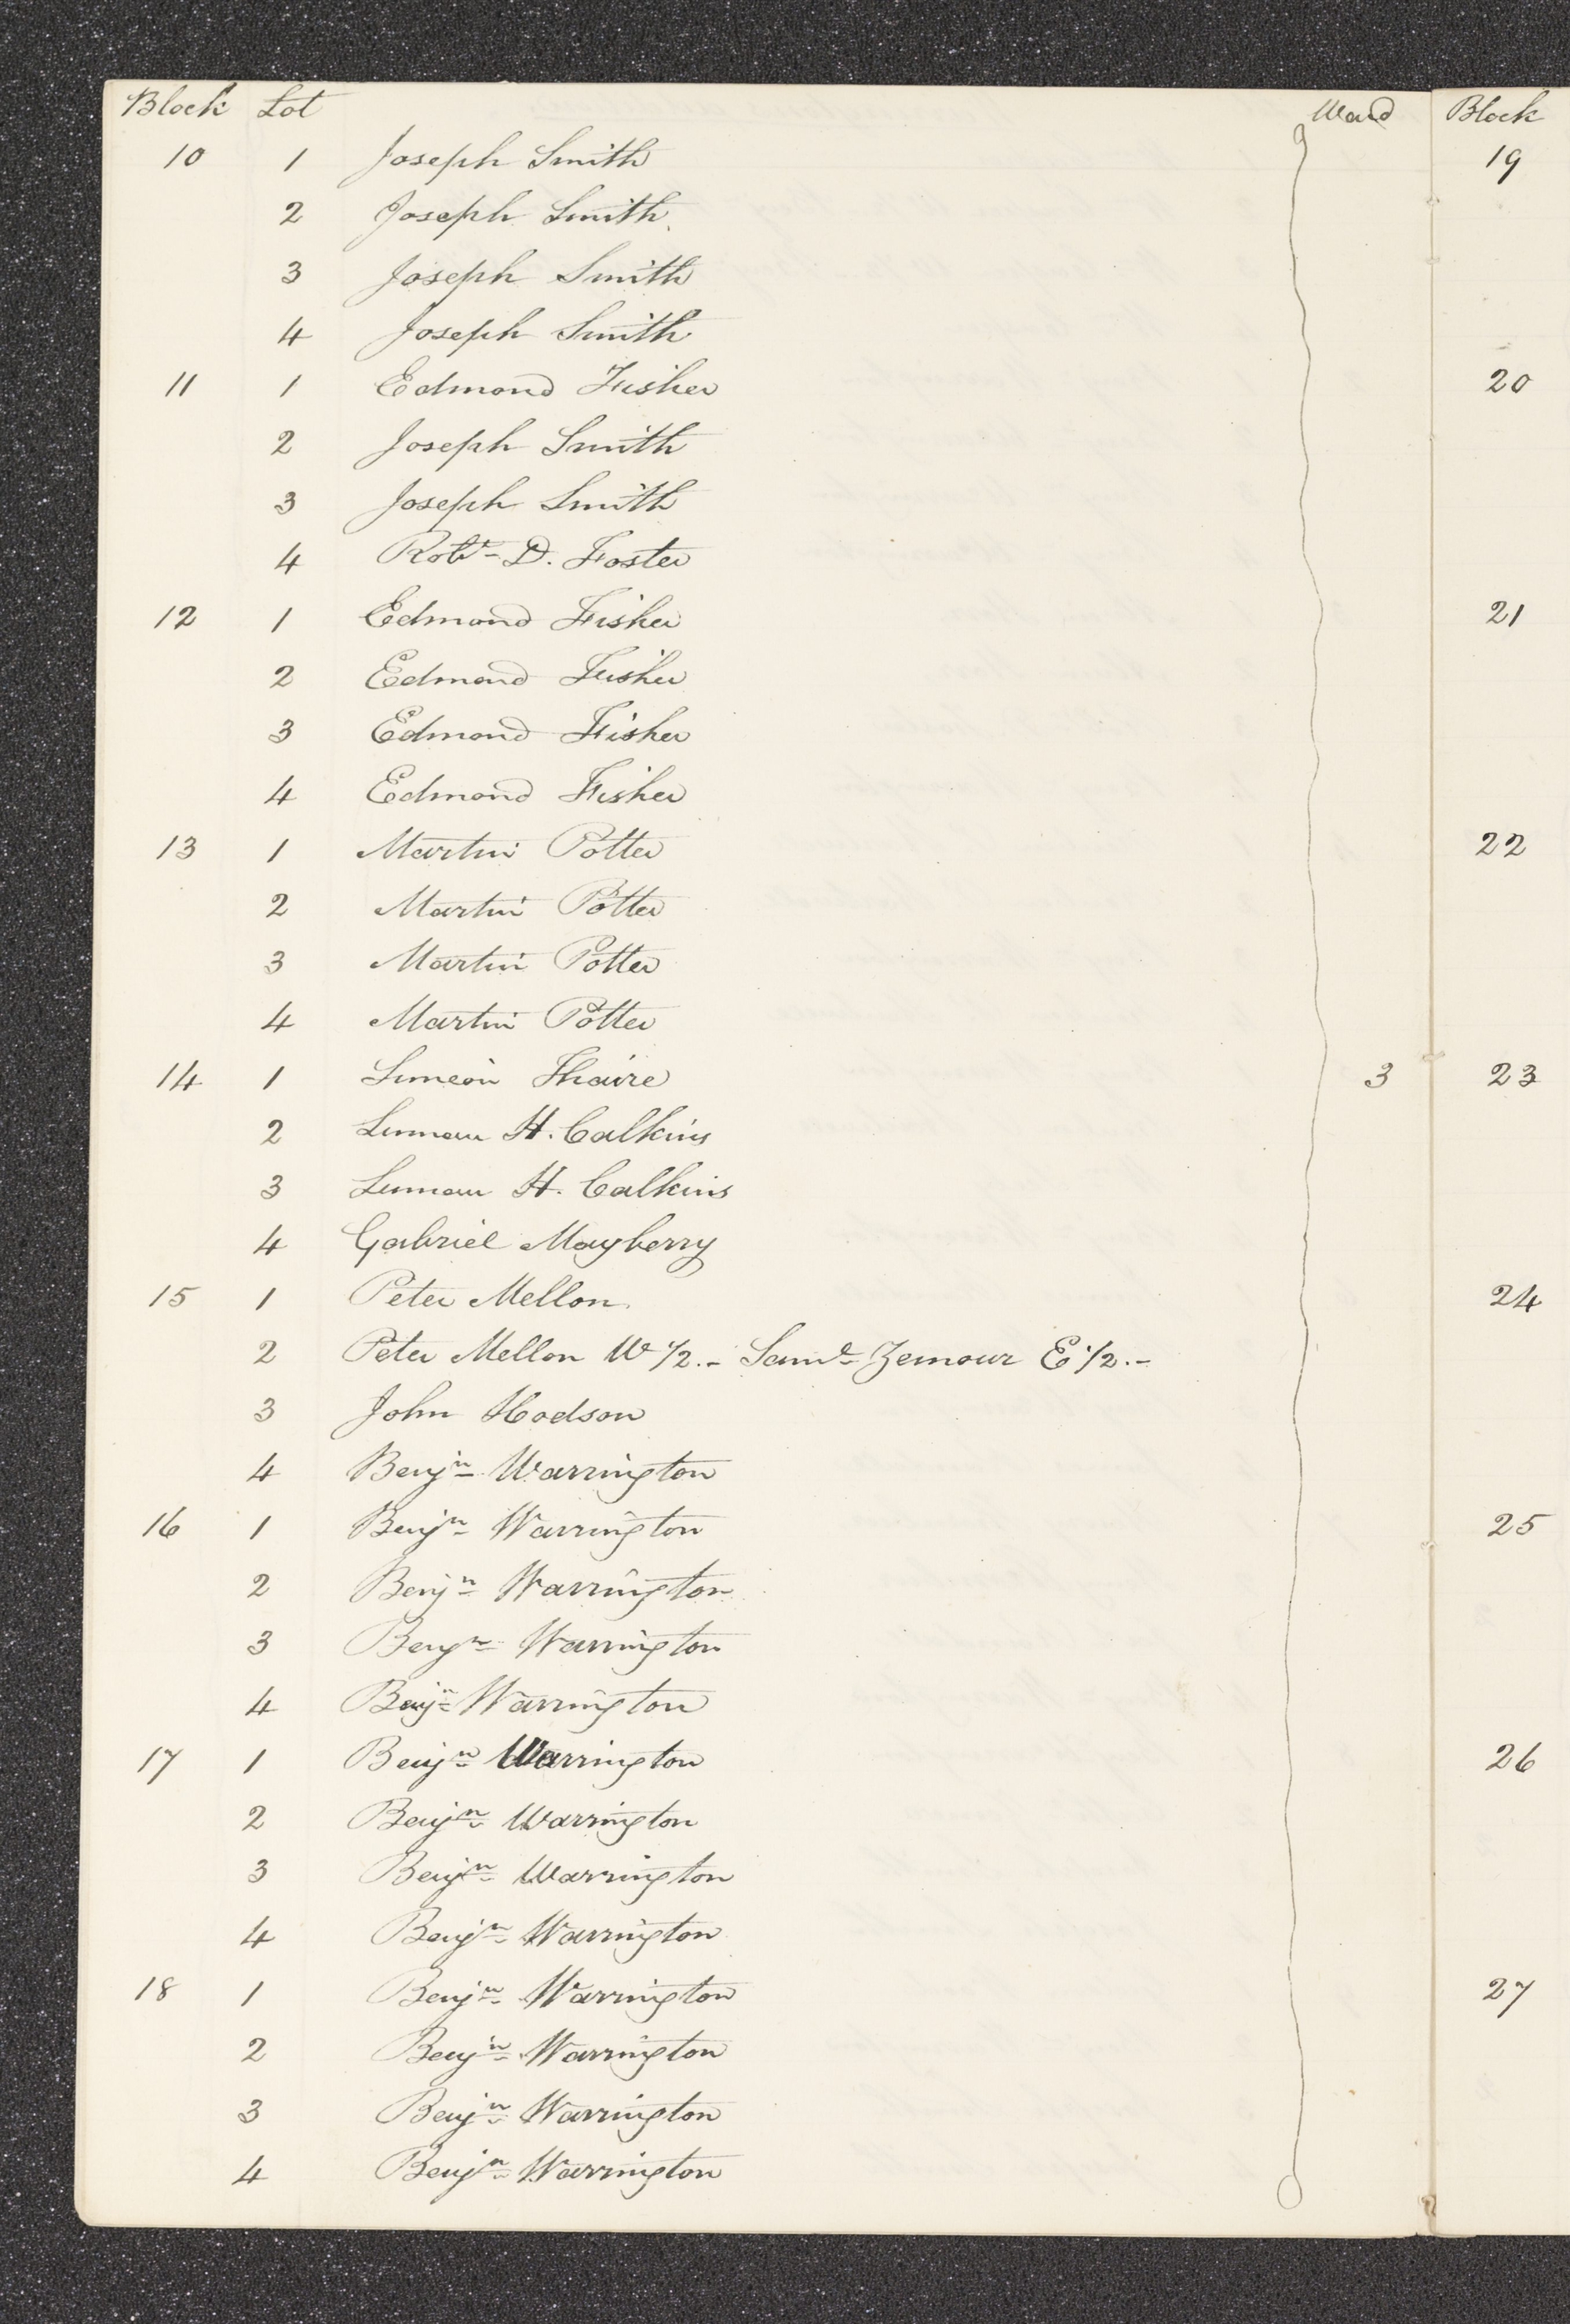 Block Lot Ward
10 1 Joseph Smith
2 Joseph Smith.
3 Joseph Smith
4 Joseph Smith
11 1 Edmond Fisher
2 Joseph Smith
3 Joseph Smith
4 Robt. D. Foster
12 1 Edmond Fisher
2 Edmond Fisher
3 Edmond Fisher
4 Edmond Fisher
13 1 Martin Potter
2 Martin Potter
3 Martin Potter
4 Martin Potter
14 1 Simeon Thaire 3
2 Luman H. Calkins
3 Luman H. Calkins
4 Gabriel Mayberry
15 1 Peter Mellon.
2 Peter Mellon W 1/2.- Saml. Zemour E 1/2.-
3 John Hodson
4 Benjn. Warrington
16 1 Benjn. Warrington
2 Benjn. Warrington
3 Benjn. Warrington
4 Benjn. Warrington
17 1 Benjn. Warrington
2 Benjn. Warrington
3 Benjn. Warrington
4 Benjn. Warrington
18 1 Benjn. Warrington
2 Benjn. Warrington
3 Benjn. Warrington
4 Benjn. Warrington
Block
19
20
21
22
23
24
25
26
27